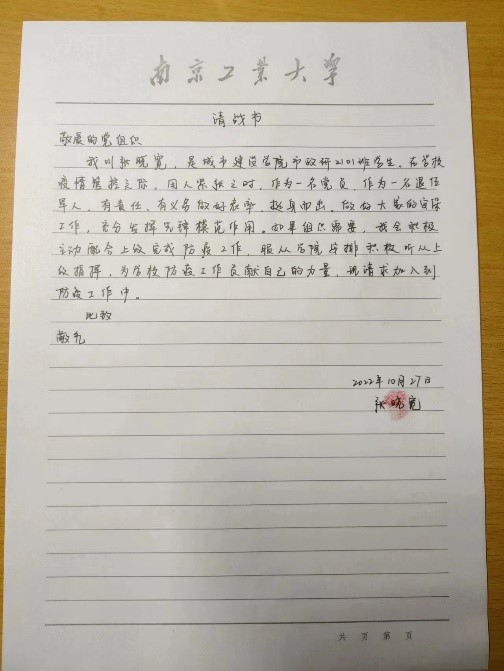 南京工业大学
请战书
敬爱的党组织
我叫张晓宽，是城市建设学院市政研2101班学生。在学校
疫情管控之际，用人紧张之时，作为一名党员，作为一名退伍
军人，有责任、有义务做好表率，挺身而出，做好大家的安保
工作，充分发挥先锋模范作用。如果组织需要，我会积极
主动配合上级完成防疫工作，服从学院安排积极听从上
级指挥，为学校防疫工作贡献自己的力量，现请求加入到
防疫工作中。
此致
敬礼
2022年10月27日
张晓宽
共 页 第 页